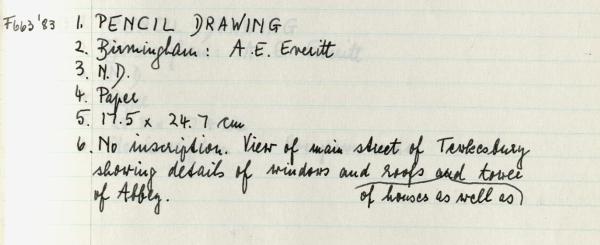 F663'83 1. PENCIL DRAWING
2. Birmingham: A.E. Everitt
3. N.D.
4. Paper
5. 17.5 x 24.7 cm
6. No inscription. View of main street of Tewkesbury
showing details of windows and roofs and tower
of Abbey. of houses as well as